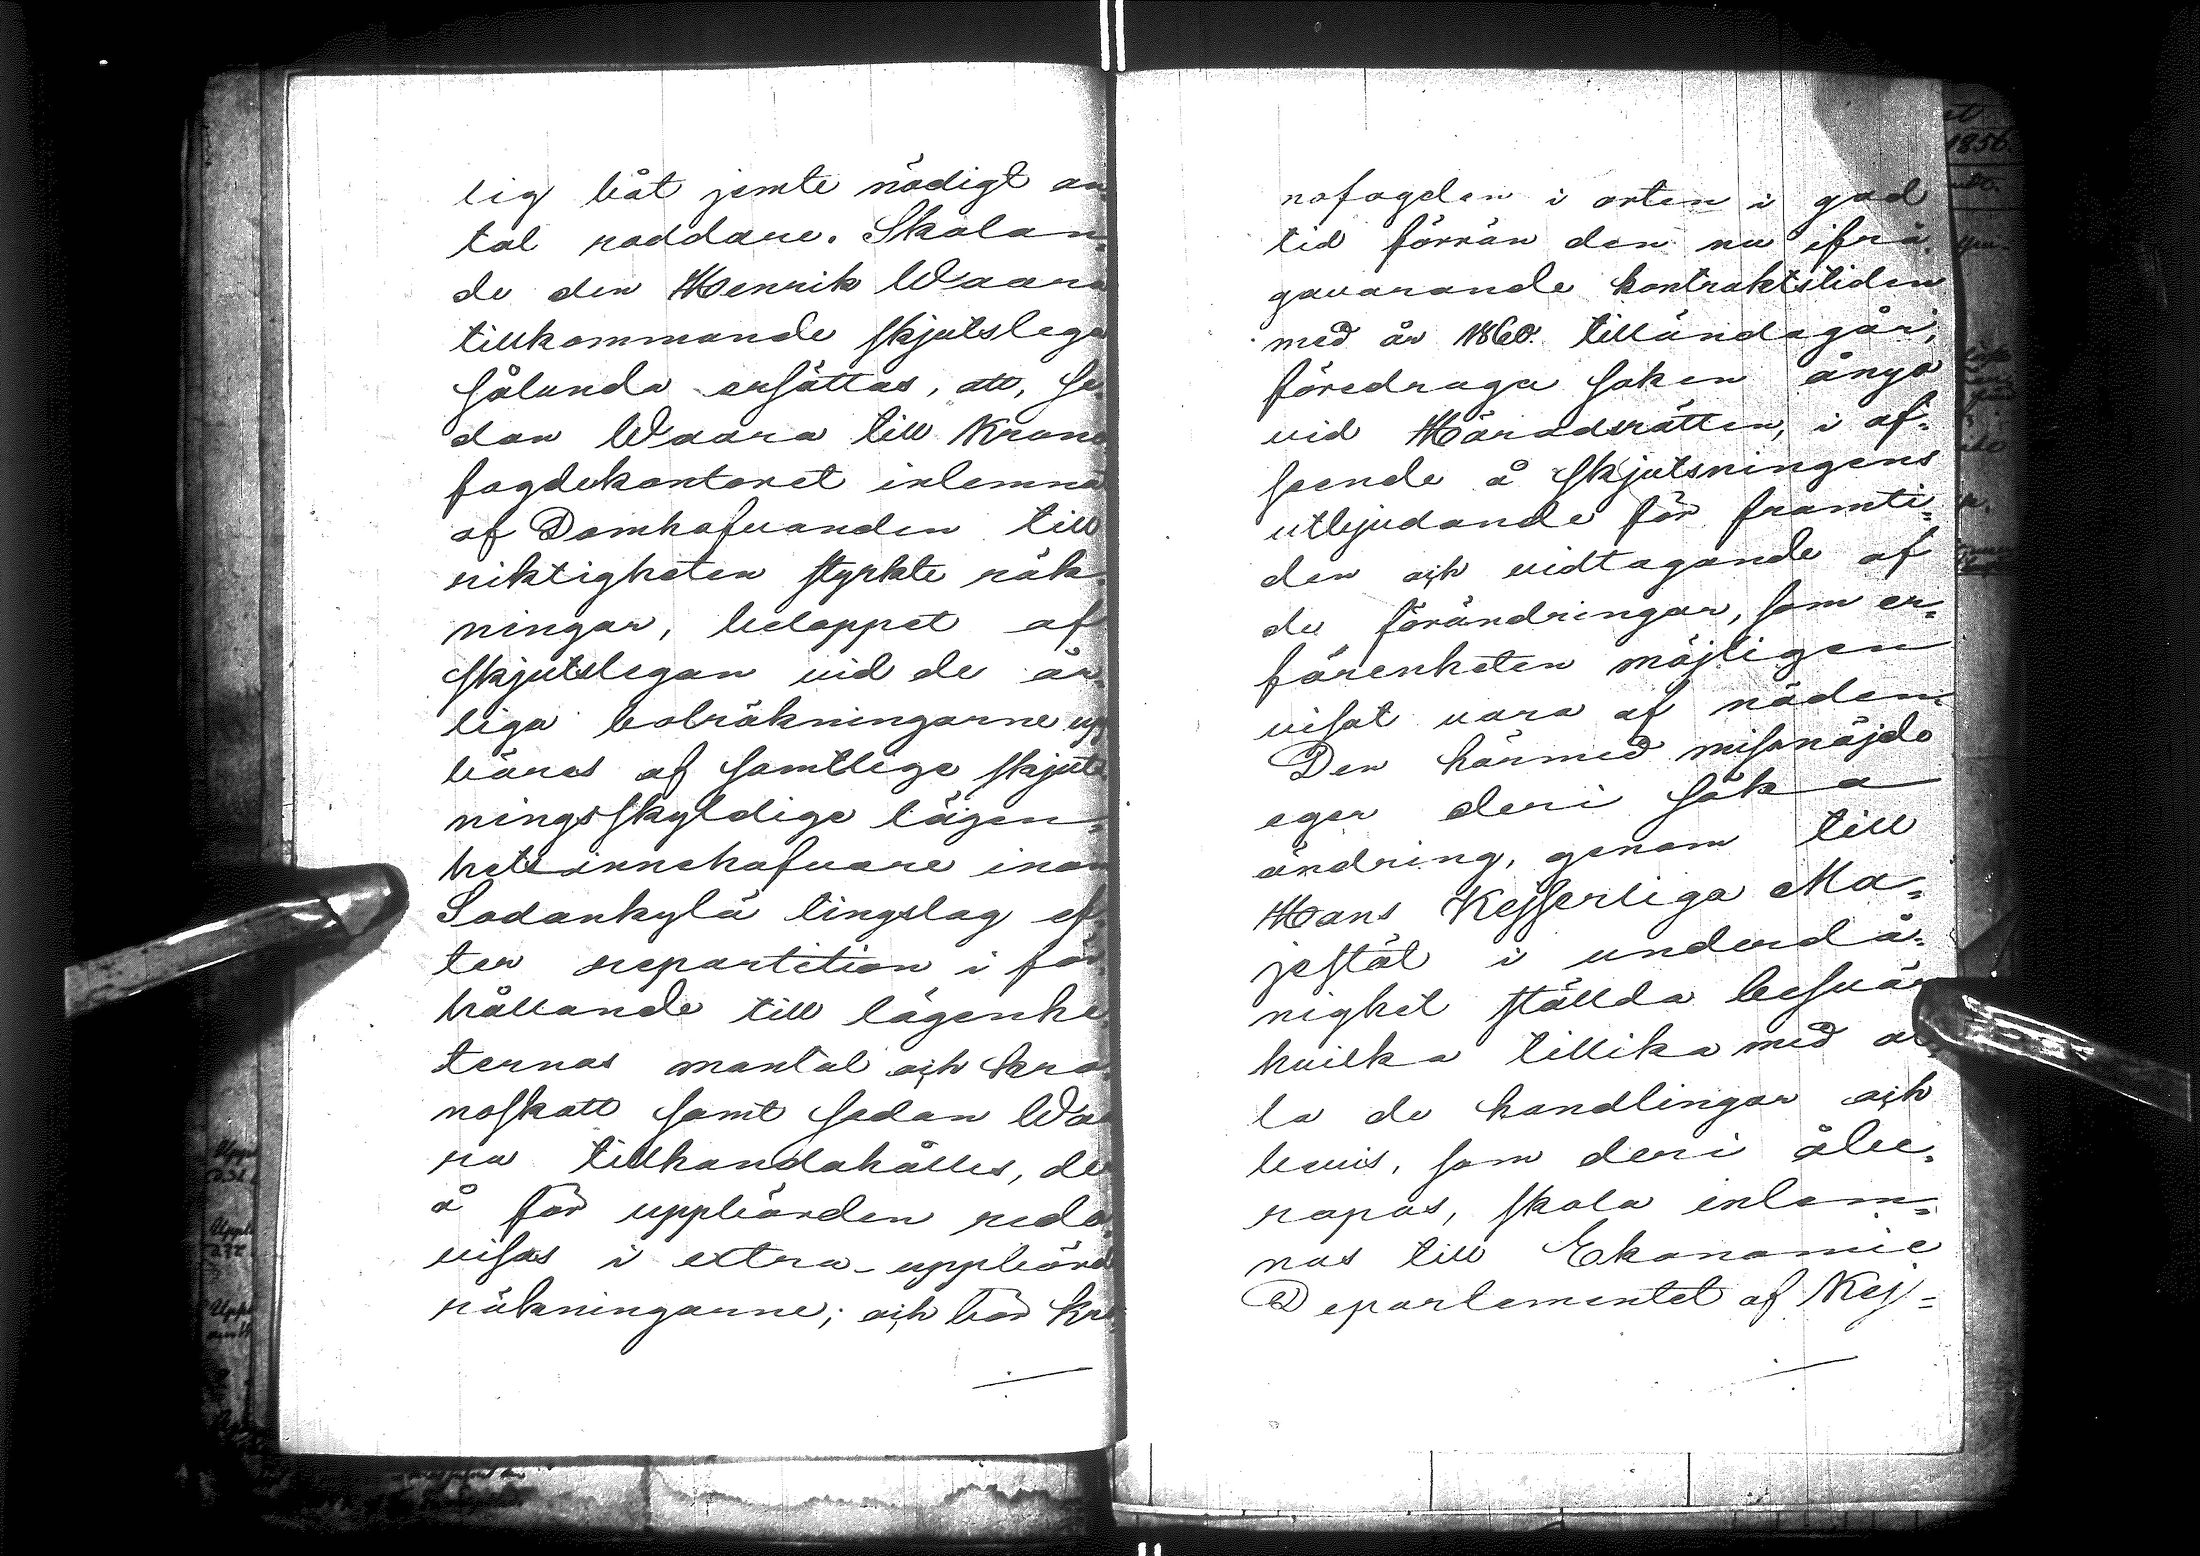 lig båt jemte nödigt an
tal roddare. Skolan¬
de den Henrik Waara
tillkommande skjutslega
sålunda ersättas, att, se¬
dan Waara till Krono
fogdekontoret inlemna
af Domhafvanden till
riktigheten styrkte räk¬
ningar, beloppet af
skjutslegan vid de år¬
liga bolräkningarne upp
bäras af samtlige skjuts
ningsskyldige lägen¬
hetsinnehafvare inom
Sodankylä tingslag ef¬
ter repartition i för¬
hållande till lägenhe
ternas mantal och kro¬
noskatt samt sedan Waa
ra tillhandahålles, der
å för uppbörden redo¬
visas i extra-uppbörds
räkningarne; och bör Kro¬
nofogden i orten i god
tid förrän den nu ifrå¬
gavarande kontraktstiden
med år 1860. tilländagår,
föredraga saken ånyo
vid Häradsrätten, i af¬
seende å skjutsningens
utbjudande för framti¬
den och vidtagande af
de förändringar, som er¬
farenheten möjligen
visat vara af nöden.
Den härmed missnöjde
eger deri söka
ändring, genom till
Hans Kejserliga Ma¬
jestät i underdå¬
nighet ställda besvär
hvilka tillika med al¬
la de handlingar och
bevis, som deri åbe¬
ropas, skola inlem¬
nas till Ekonomie
Departementet af Kej¬